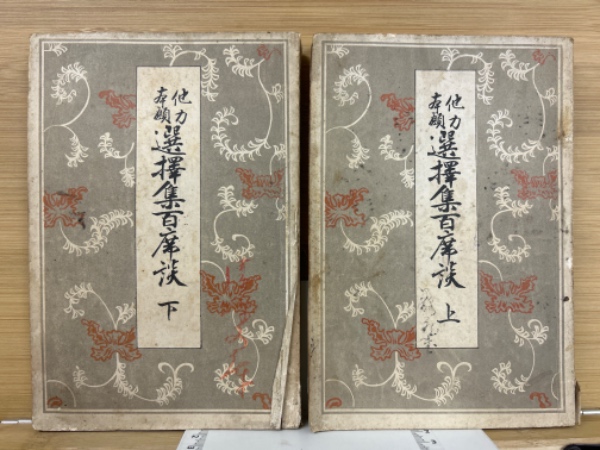 他力
本願
選擇集百席談
下
他力
本願
選擇集百席談
上